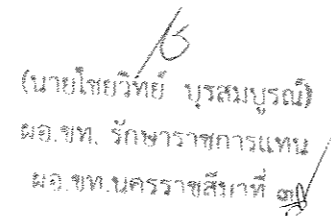 (นายไชยวิทย์ บุรสมบูรณ์)
ผอ.ขท. รักษาราชการแทน
ผอ.ขท.นครราชสีมาที่ ๓